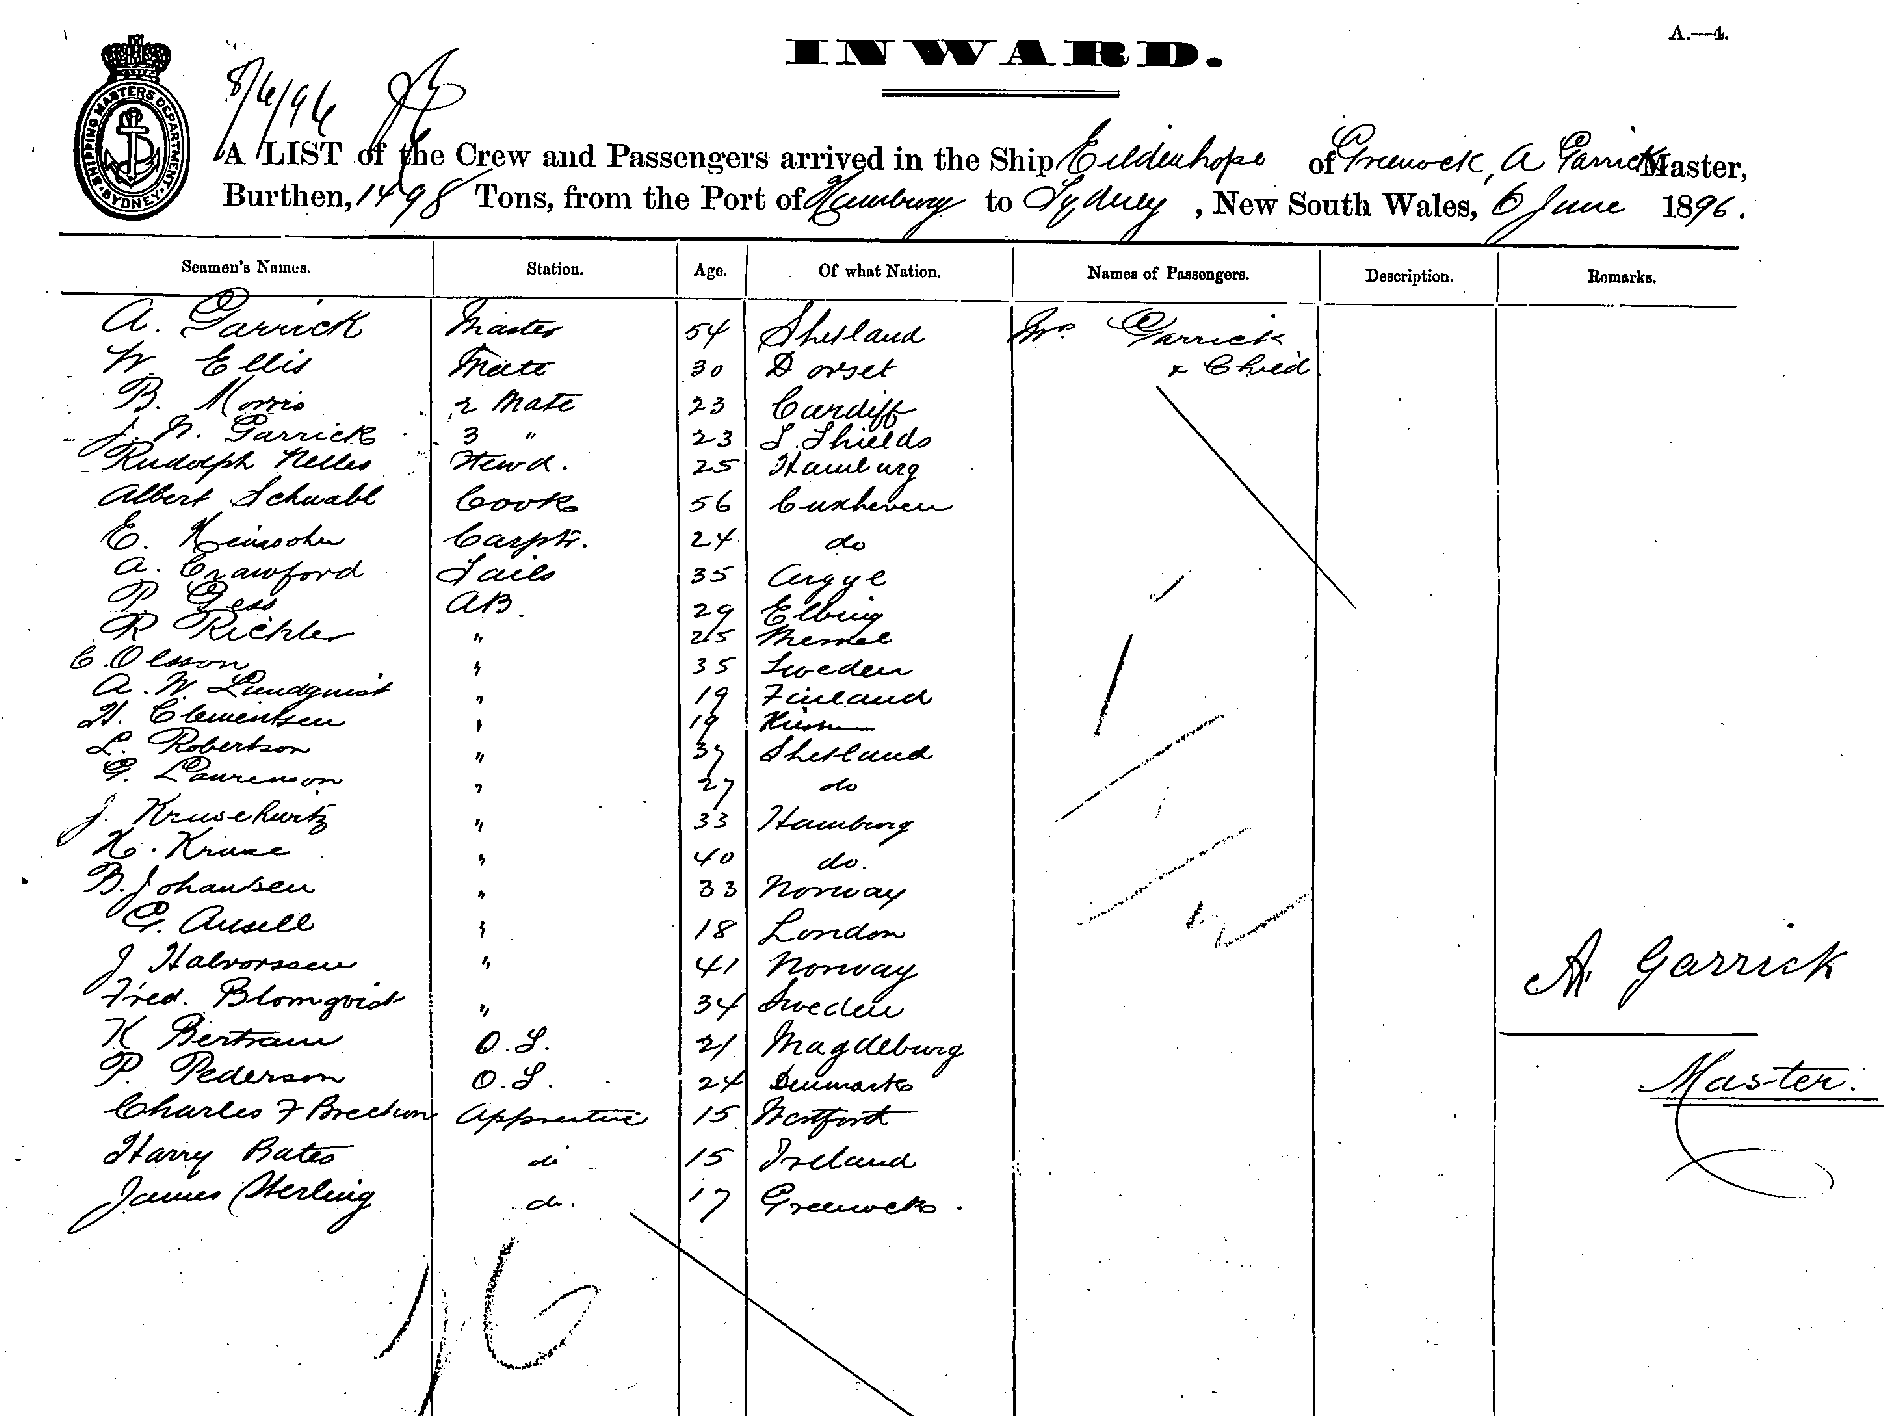 A.—4.
INWARD.
SHIPPING MASTERS DEPARTMENT SYDNEY
8/6/96
A LIST of the Crew and Passengers arrived in the Ship Eildenhope of Greenock, A Garrick Master,
Burthen, 1498 Tons, from the Port of Hamburg to Sydney, New South Wales, 6 June 1896.
Seamen's Names. Station. Age. Of what Nation. Names of Passengers. Description. Remarks.
A. Garrick Master 54 Shetland Mrs Garrick
W. Ellis Mate 30 Dorset & Child
B. Morris 2 Mate 23 Cardiff
J. W. Garrick 3 " 23 S. Shields
Rudolph Nelles Stewd. 25 Hamburg
Albert Schwabl Cook 56 Cuxheven
E. Carptr. 24 do
A. Crawford Sails 35 Argyle
P. Gess AB. 29 Elbing
R Richter " 25 Memel
C. Olsson " 35 Sweden
A. W. Lundqvist " 19 Finland
H. Clementsen " 19
L. Robertson " 37 Shetland
G. Laurenson " 27 do
J. Kruschwitz " 33 Hamburg
H. Kruse " 40 do.
B. Johansen " 33 Norway
G. Ansell " 18 London
J Halvorssen " 41 Norway
Fred. Blomqvist " 34 Sweden
K Bertram O.S. 21 Magdeburg
P. Pederson O.S. 24 Denmark
Charles F Apprentice 15
Harry Bates do 15 Ireland
James Sterling do. 17 Greenock.
A. Garrick
Master.
26